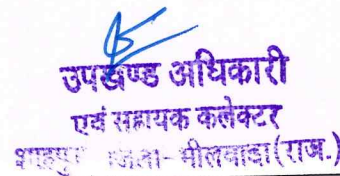 उपखण्ड अधिकारी
एवं सहायक कलेक्टर
शाहपुरा जिला - भीलवाडा (राज.)